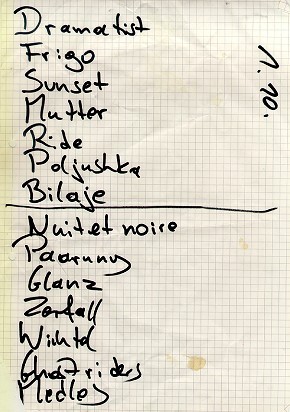 Dramatist
Frigo
Sunset
Mutter
Ride
Poljushka
Bilaje
Nuit et noire
Paarung
Glanz
Zerfall
Wichtel
Ghostriders
Medley
1. 10.